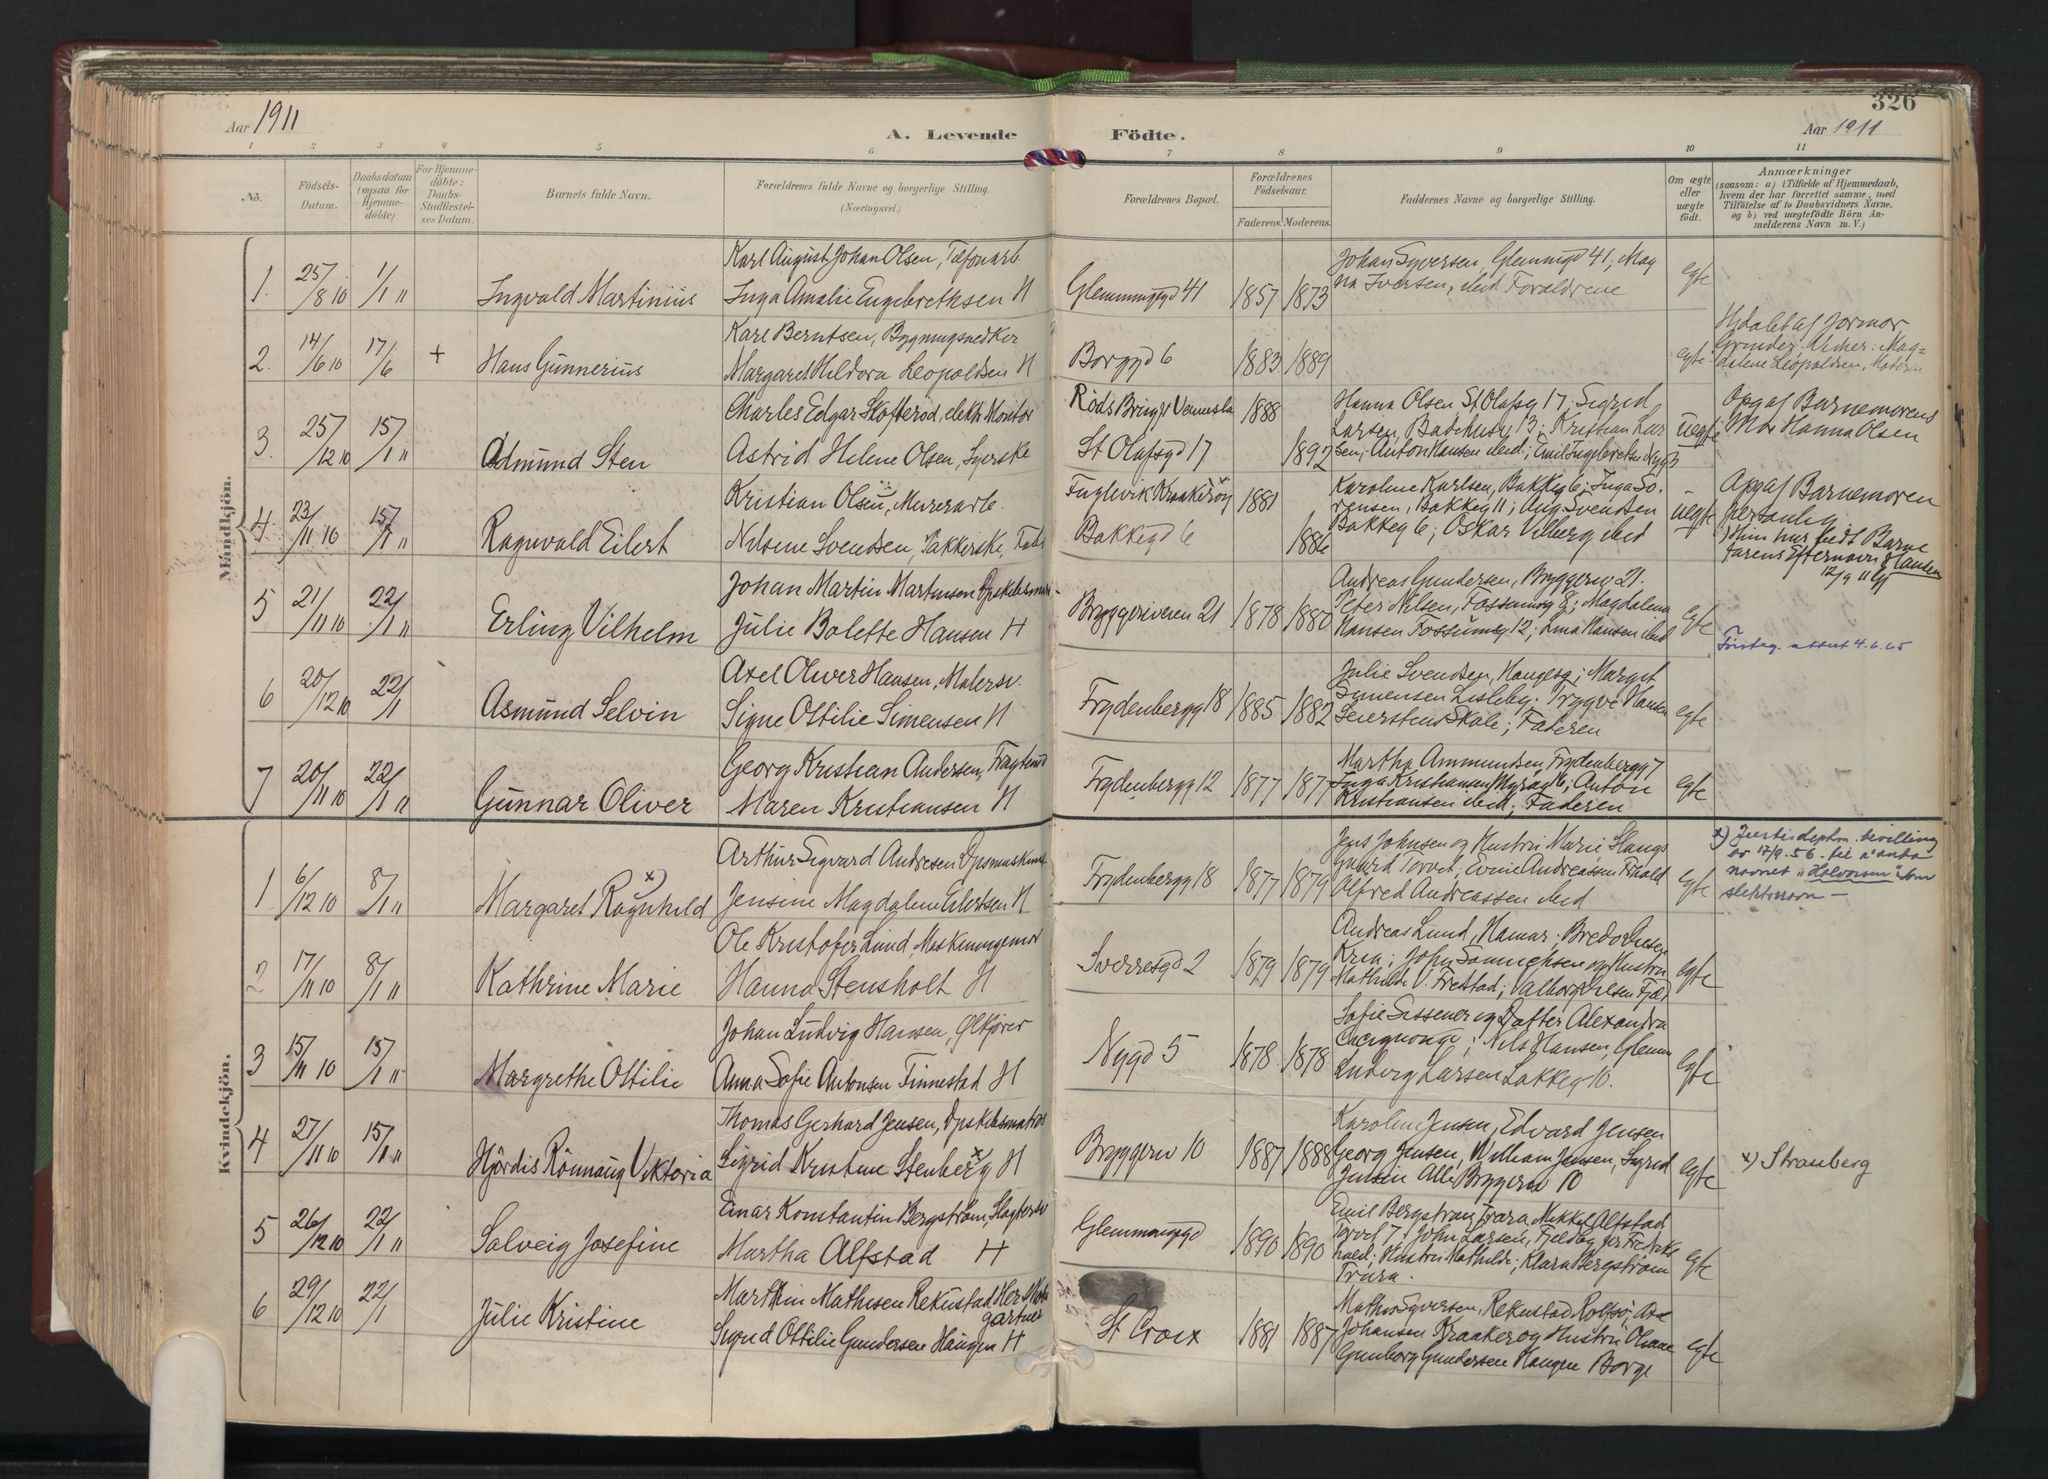 326
Aar 1911
A. Levende Födte.
Aar 1911
1 2 3 4 5 6 7 8 9 10 11
No.
Födsels-
Datum.
Daabsdatum
(ogsaa for
Hjemme-
döbte)
For Hjemme-
döbte:
Daabs-
Stadfæstel-
ses Datum.
Barnets fulde Navn.
Forældrenes fulde Navne og borgerlige Stilling.
(Næringsvei.)
Forældrenes Bopæl.
Forældrenes
Födselsaar.
Faderens. Moderens.
Faddernes Navne og borgerlige Stilling.
Om ægte
eller
uægte
födt.
Anmærkninger
(saasom: a) i Tilfælde af Hjemmedaab,
hvem der har forrettet samme, med
Tilföielse af to Daabsvidners Navne,
og b) ved uægtefödte Börn An-
melderens Navn m. V.)
Mandkjön.
1. 25/8 10 1/1 11 Ingvald Martinius
Karl August Johan Olsen, Telfonarb.
Inga Amalie Engebrethsen H
Glemmingd 41 1857 1873
Johan Syversen, Glemmgd 41; Mag
na Iversen, ibid Forældrene
egte
2. 14/6 10 17/6 + Hans Gunnerius
Karl Berntsen, Bygningssnedker
Margaret Hildora Leopoldsen H
Borggd 6 1883 1889
egte
Hjdøbt af Jormor
Magdalene Leopoldsen, Modern
3. 25/12 10 15/1 11 Edmund Sten
Charles Edgar Skofteröd, elektr Montör
Astrid Helene Olsen, Syerske
Röds Brug Vennesla 1888
St Olafsgd 17 1892
Hanna Olsen St Olafsg 17; Sigrid
Larsen, 13; Kristian Lar
sen; Anton Hansen ibid; Emil Ingebretsen
uegte
Opg af Barnemorens
Mor Hanna Olsen
4. 23/11 10 15/1 11 Ragnvald Eilert
Kristian Olsen, Murerarb.
Nilsine Svendsen, Pakkerske, Fabr
Fuglevik Kraakeröy 1881
Bakkegd 6 1886
Karoline Karlsen, Bakkeg 6; Inga So-
rensen, Bakkeg 11; Aug Svendsen
Bakkeg 6; Oskar Vilberg ibid
uegte
Opg af Barnemoren
personlig
Barne
farens Efternavn Hansen
12/9 11
5 21/11 10 22/1 11 Erling Vilhelm
Johan Martin Martinsen Dpskibsmat-
Julie Bolette Hansen H
Bryggeriveien 21 1878 1880
Andreas Gundersen, Bryggerv 21.
Peter Nilsen, Fossumsg 8; Magdalena
Hansen Fossumsg 12; Lina Hansen ibid
egte
attest 4.6.65
6 20/12 10 22/1 Asmund Selvin
Axel Oliver Hansen, Malersv.
Signe Ottilie Simensen H
Frydenbergg 18 1885 1882
Julie Svendsen, Haugesg; Margit
Simensen Lisleby; Trygve Hansen
Seiersten Skole; Faderen
egte
7 20/11 10 22/1 11 Gunnar Oliver
Georg Kristian Andersen,
Maren Kristiansen H
Frydenbergg 12 1877 1877
Martha Ammundsen, Frydenbergg 7
Inga Kristiansen, 6; Anton
Kristiansen ibid; Faderen
egte
Kvindekjön.
1 6/12 10 8/1 11 Margaret Ragnhild x)
Arthur Sigvard Andresen Dpsmaskin-
Jensine Magdalene Eilertsen H
Frydenbergg 18 1877 1879
Jens Johnsen og Hustru Marie
Torvet; Evine Andreassen
Alfred Andreassen ibid
egte
x) Justisdeptm. bevilling
av 17/9.56 til å anta
navnet "Halvorsen" som
slektsnavn –
2 17/11 10 8/1 11 Kathrine Marie
Ole Kristofer Lund, Maskiningeniør
Hanna Stensholt H
Sverresgd 2 1879 1879
Andreas Lund, Hamar;
Kria; John og Hustru
Mathilde; Valborg Olsen
egte
3 15/11 10 15/1 11 Margrethe Ottilie
Johan Ludvig Hansen, Ølkjører
Anna Sofie Antonsen Tinnestad H
Nygd 5 1878 1878
Sofie og Datter Alexandra
Nils Hansen, Glemm
Ludvig Larsen Bakkeg 10.
egte
4 27/11 10 15/1 11 Hjördis Rönnaug Viktoria
Thomas Gerhard Jensen, Dpskibsmatros
Sigrid Kristine Stenberg x) H
Bryggerv 10 1887 1888
Karoline Jensen, Edvard Jensen
Georg Jensen, William Jensen, Sigrid
Jensen Alle Bryggerv 10
egte
x) Strasberg
5 26/12 10 22/1 11 Solveig Josefine
Einar Konstantin Bergström, Slagtersv
Martha Alfstad H
Glemmengd 1890 1890
Emil Bergström, Trara, Mikkel Alfstad
Torvet 7; John Larsen, Fredrik
hald; Hustru Mathilde; Klara Bergström
Trara.
egte
6 29/12 10 22/1 Julie Kristine
Marthin Mathisen Rekustad
gartner
Sigrid Ottilie Gundersen Haugen H
St Croix 1881 1887
Mathis Syversen, Rekustad Rolfsö;
Johansen Kraakeröy Hustru
Gunborg Gundersen Haugen Borge
egte